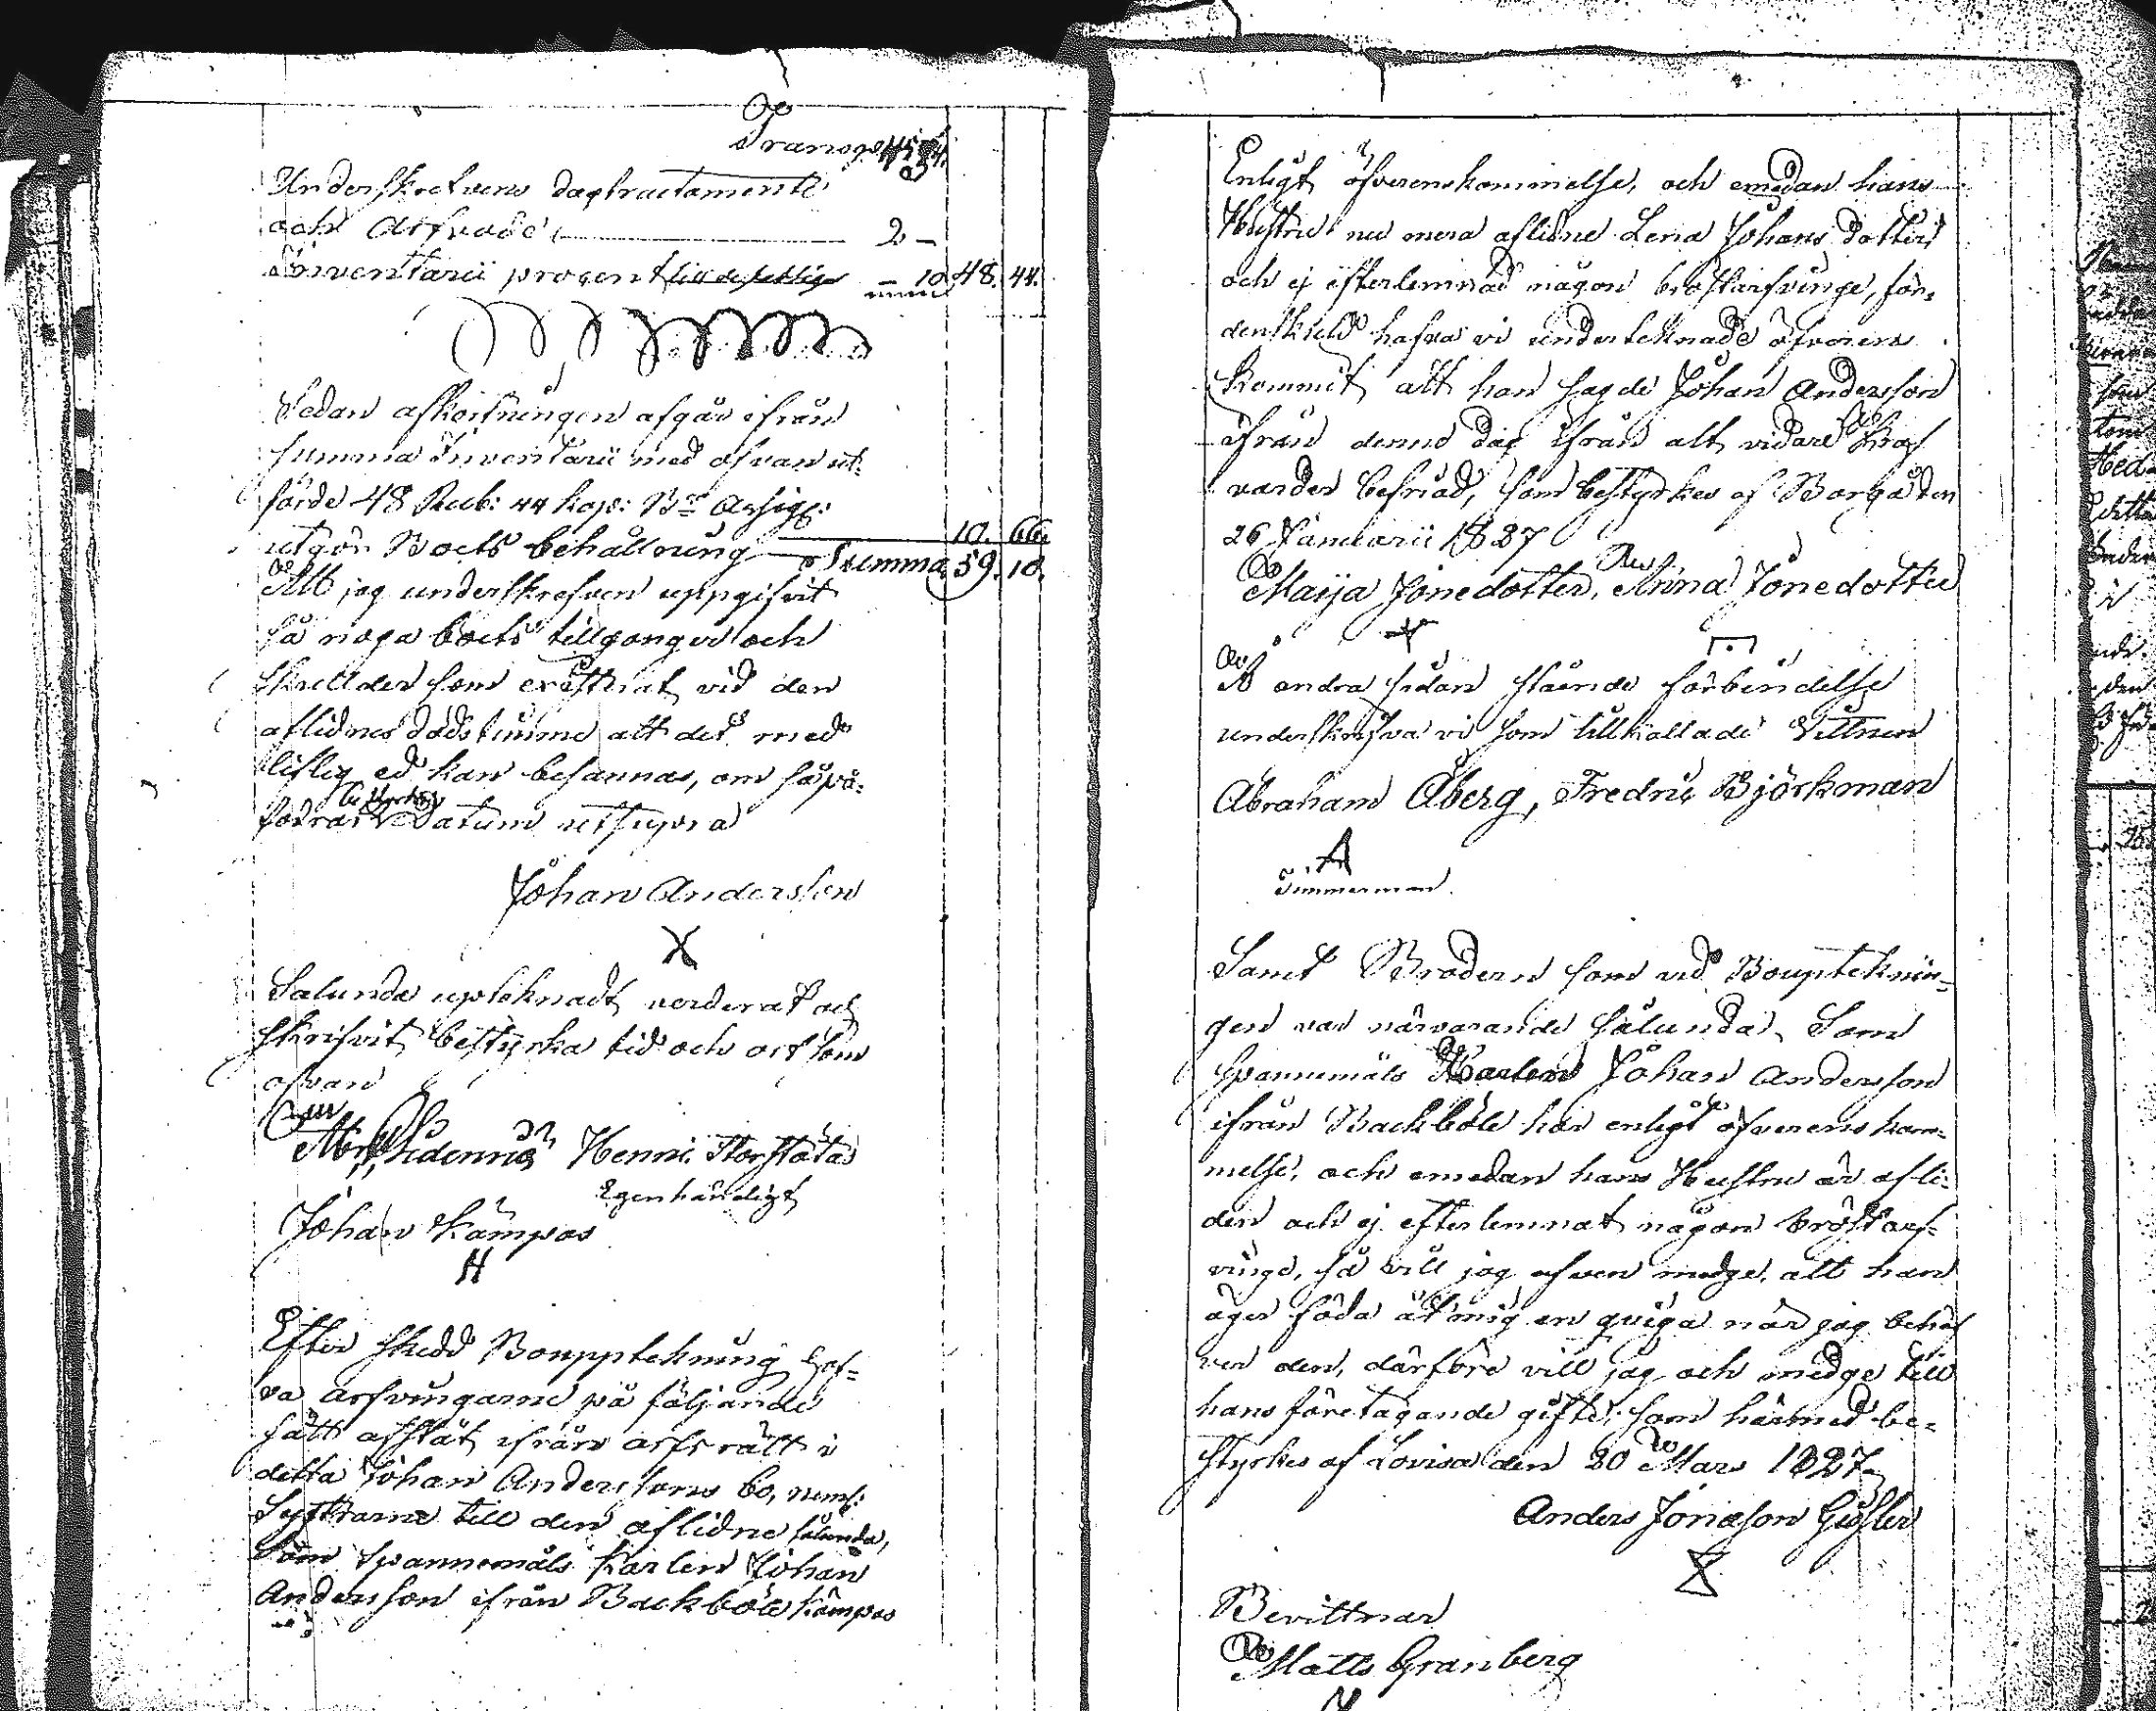 Transp.
Underskrefvens dagtractamente
och Arfvode 2 —
Inventarii procent — 10. 48. 44.
Sedan afkortningen afgår ifrån
summa Inventarii med ofvan ut-
förde 48 Rub: 44 kop: B:co Assig:
utgör Boets behållning 10. 66.
Summa 59. 10.
Att jag underskrefven uppgifvit
så noga boets tillgångar och
skullder som existerat vid den
aflidnes dödstimme att det med
liflig ed kan besannas, om så på-
fodras Datum utsupra
Johan Andersson
X
Salunda upteknadt värderat och
skrifvit bestyrka tid och ort som
ofvan
Henric Storståta
Egenhändigt
Johan Kämpas
H
Efter skedd Bouppteckning haf-
va arfvingarne på följande
sått afståt ifrån arfs rått i
detta Johan Anderssons bo, neml:
Systrarne till den aflidne sålunda,
Som Spannemåls Karlen Johan
Andersson ifrån Backböle Kämpas
Enligt öfverenskommelse, och emedan hans
Hustru nu mera aflidne Lena Johans dotter
och ej efterlemnad någon bröstarfvinge, för-
denskuld hafva vi undertecknade öfverens
kommit att han sagde Johan Andersson
ifrån denne dag ifrån alt vidare Kraf
varder befriad, som bestyrkes af Borgå den
26 Januarii 1827
Maija Jonedotter, Anna Jonedotter
Å andra sidan stående förbindelse
underskrifva vi som tillkallade Vittnen
Abraham Åberg, Fredric Björkman
A
Timmerman.
Samt Brodern som vid Boupteknin-
gen var närvarande sålunda, Som
Spannemåls Karlen Johan Andersson
ifrån Backböle har enligt öfverenskom-
melse, och emedan hans Hustru är afli-
den och ej efterlemnat någon bröstarf-
vinge, så vill jag äfven medge, att han
åger föda åt mig en quiga når jag behöf
ver den, därföre vill jag och medge till
hans företagande gifte, som härmed be-
styrkes af Lovisa den 20 Mars 1827
Anders Jonasson Gusler
Bevittnar
Matts Granberg